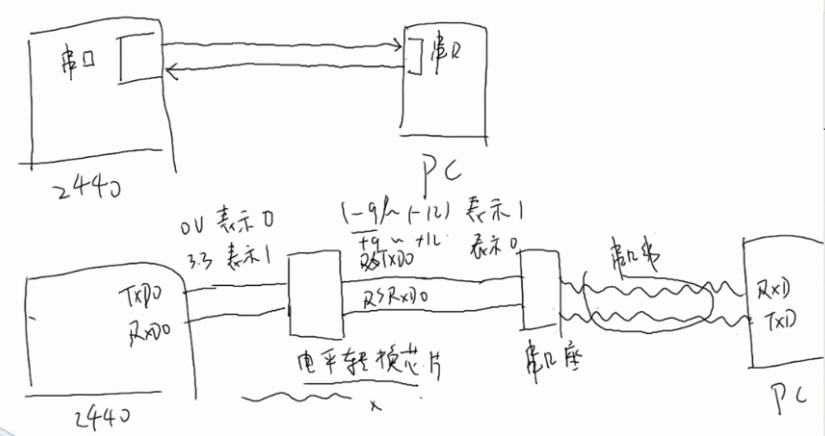 串口
串口
2440
PC
0V 表示0
3.3 表示1
(-9~(-12) 表示1
+9 ~ +12 表示0
TXD0
RXD0
RSTXD0
RSRXD0
串口线
RXD
TXD
电平转换芯片
串口座
2440
PC